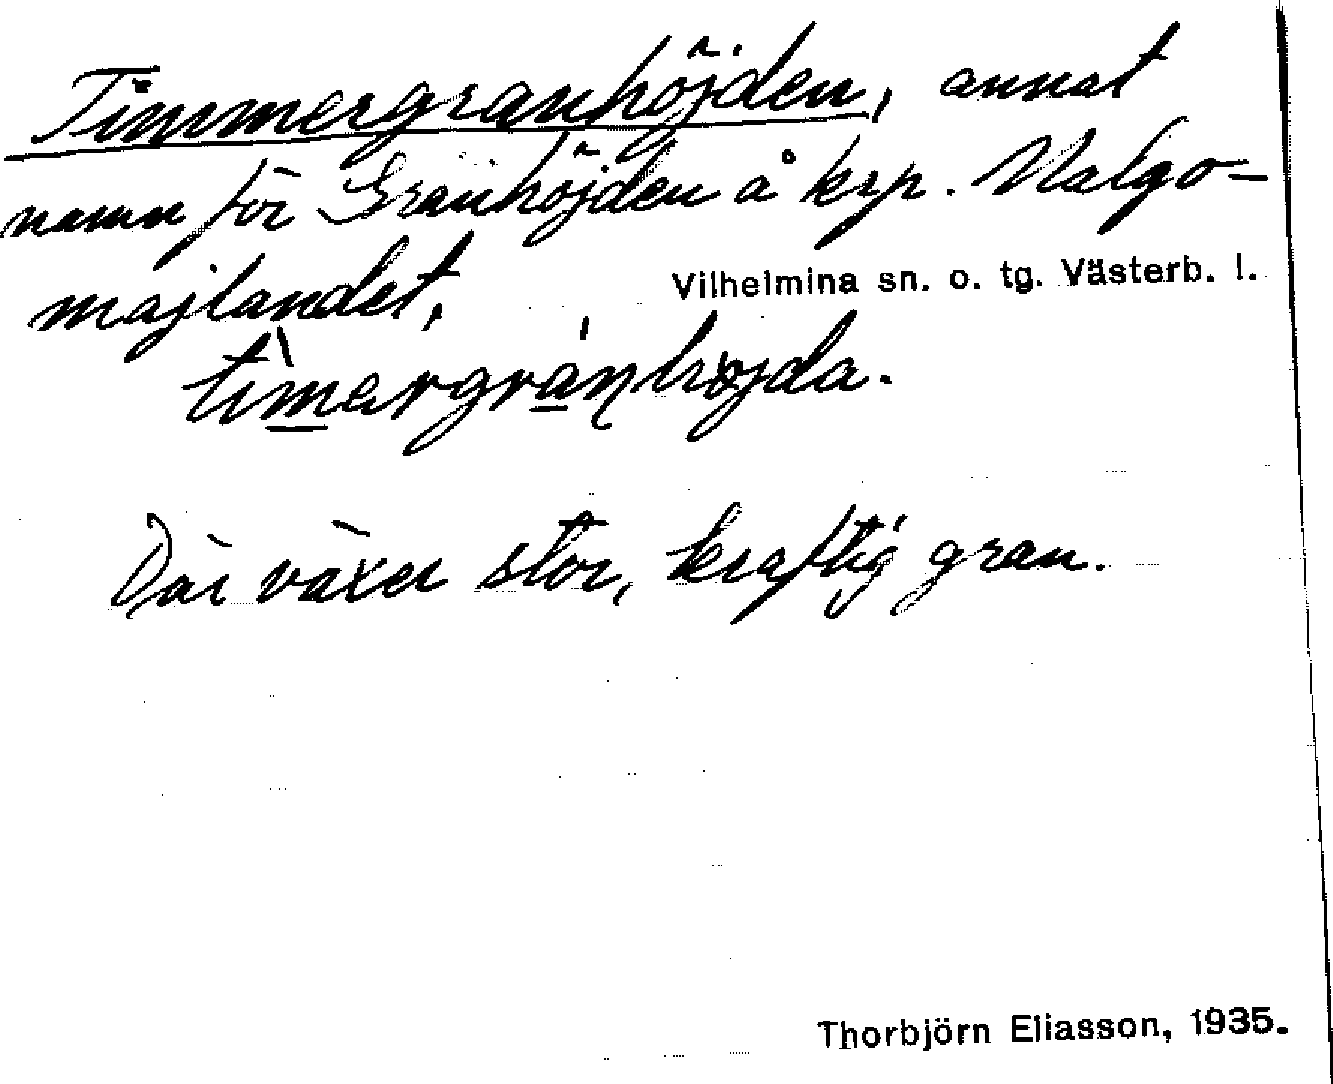 Timmergranhöjden, annat
namn för Granhöjden å krp. Malgo-
majlandet.
Vilhelmina sn. o. tg. Västerb. l.
tìmərgránhöjda.
Där växer stor, kraftig gran.
Thorbjörn Eliasson, 1935.